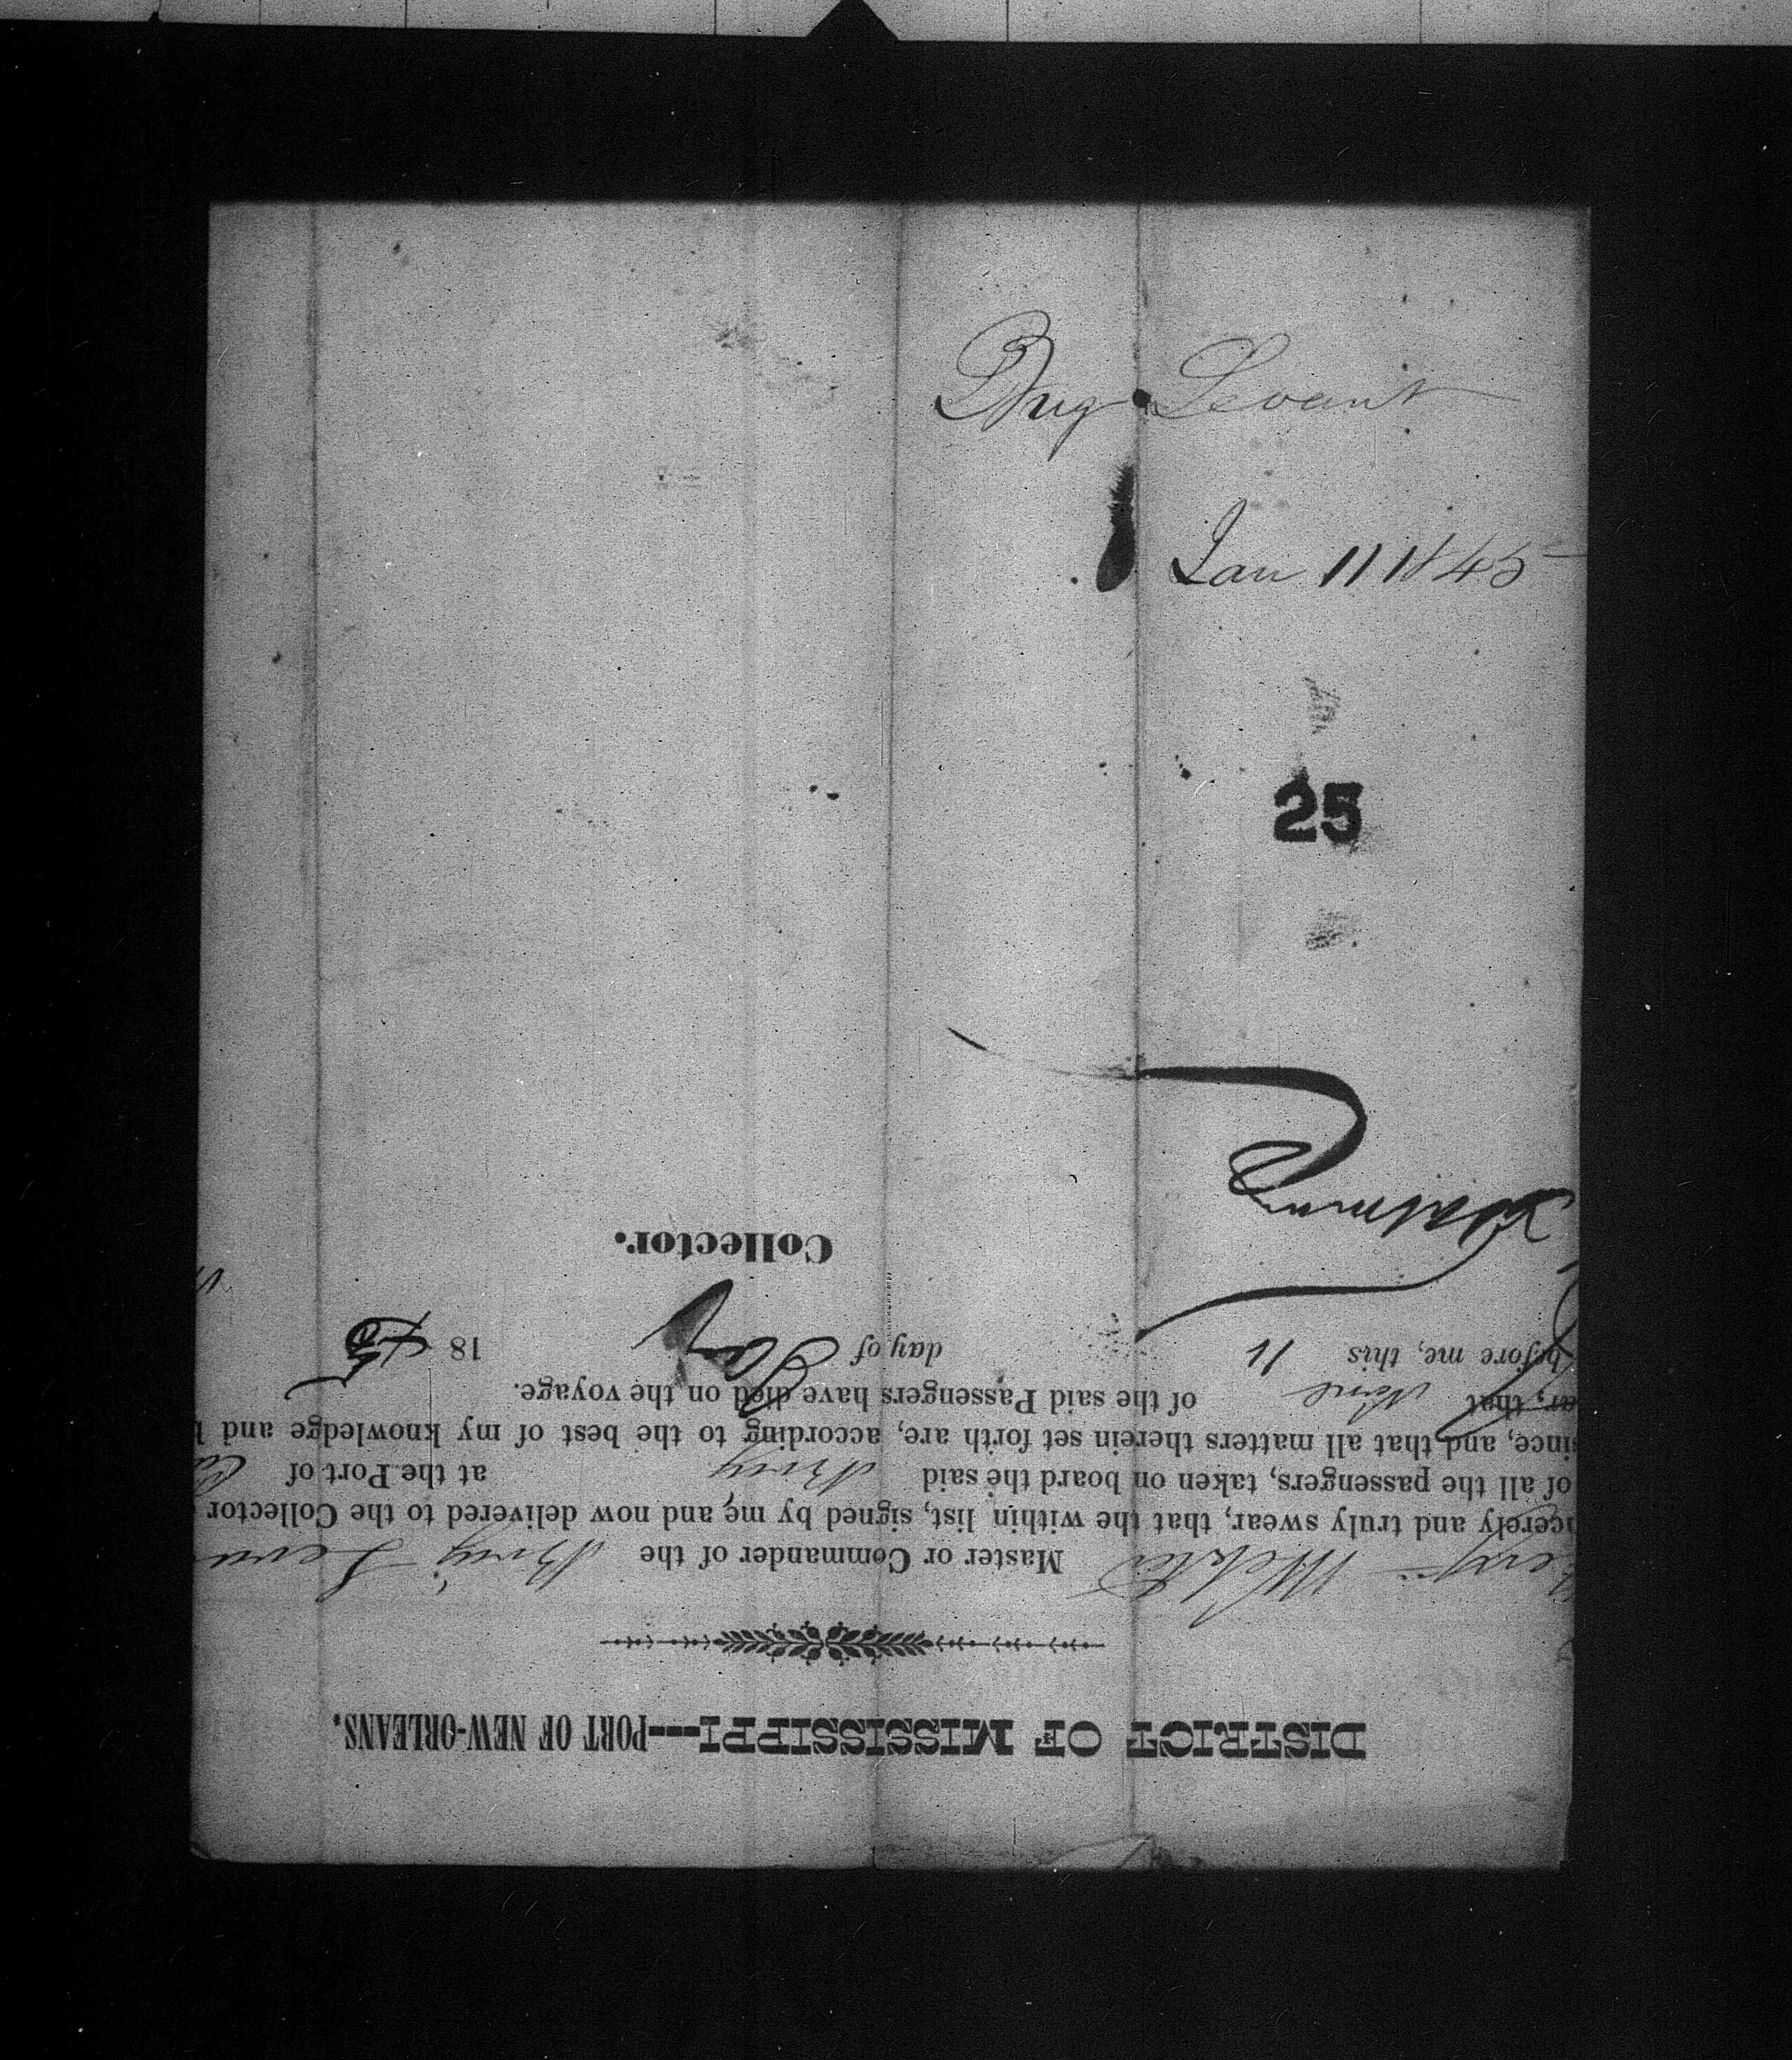 Brig Levant
Jan 11 1845
25
DISTRICT OF MISSISSIPPI---PORT OF NEW-ORLEANS.
Master or Commander of the Brig Leva
ncerely and truly swear, that the within list, signed by me and now delivered to the Collector
of all the passengers, taken on board the said Brig at the Port of
since, and that all matters therein set forth are, according to the best of my knowledge and b
ar, that None of the said Passengers have died on the voyage.
before me, this 11 day of Jany 1845
Collector.